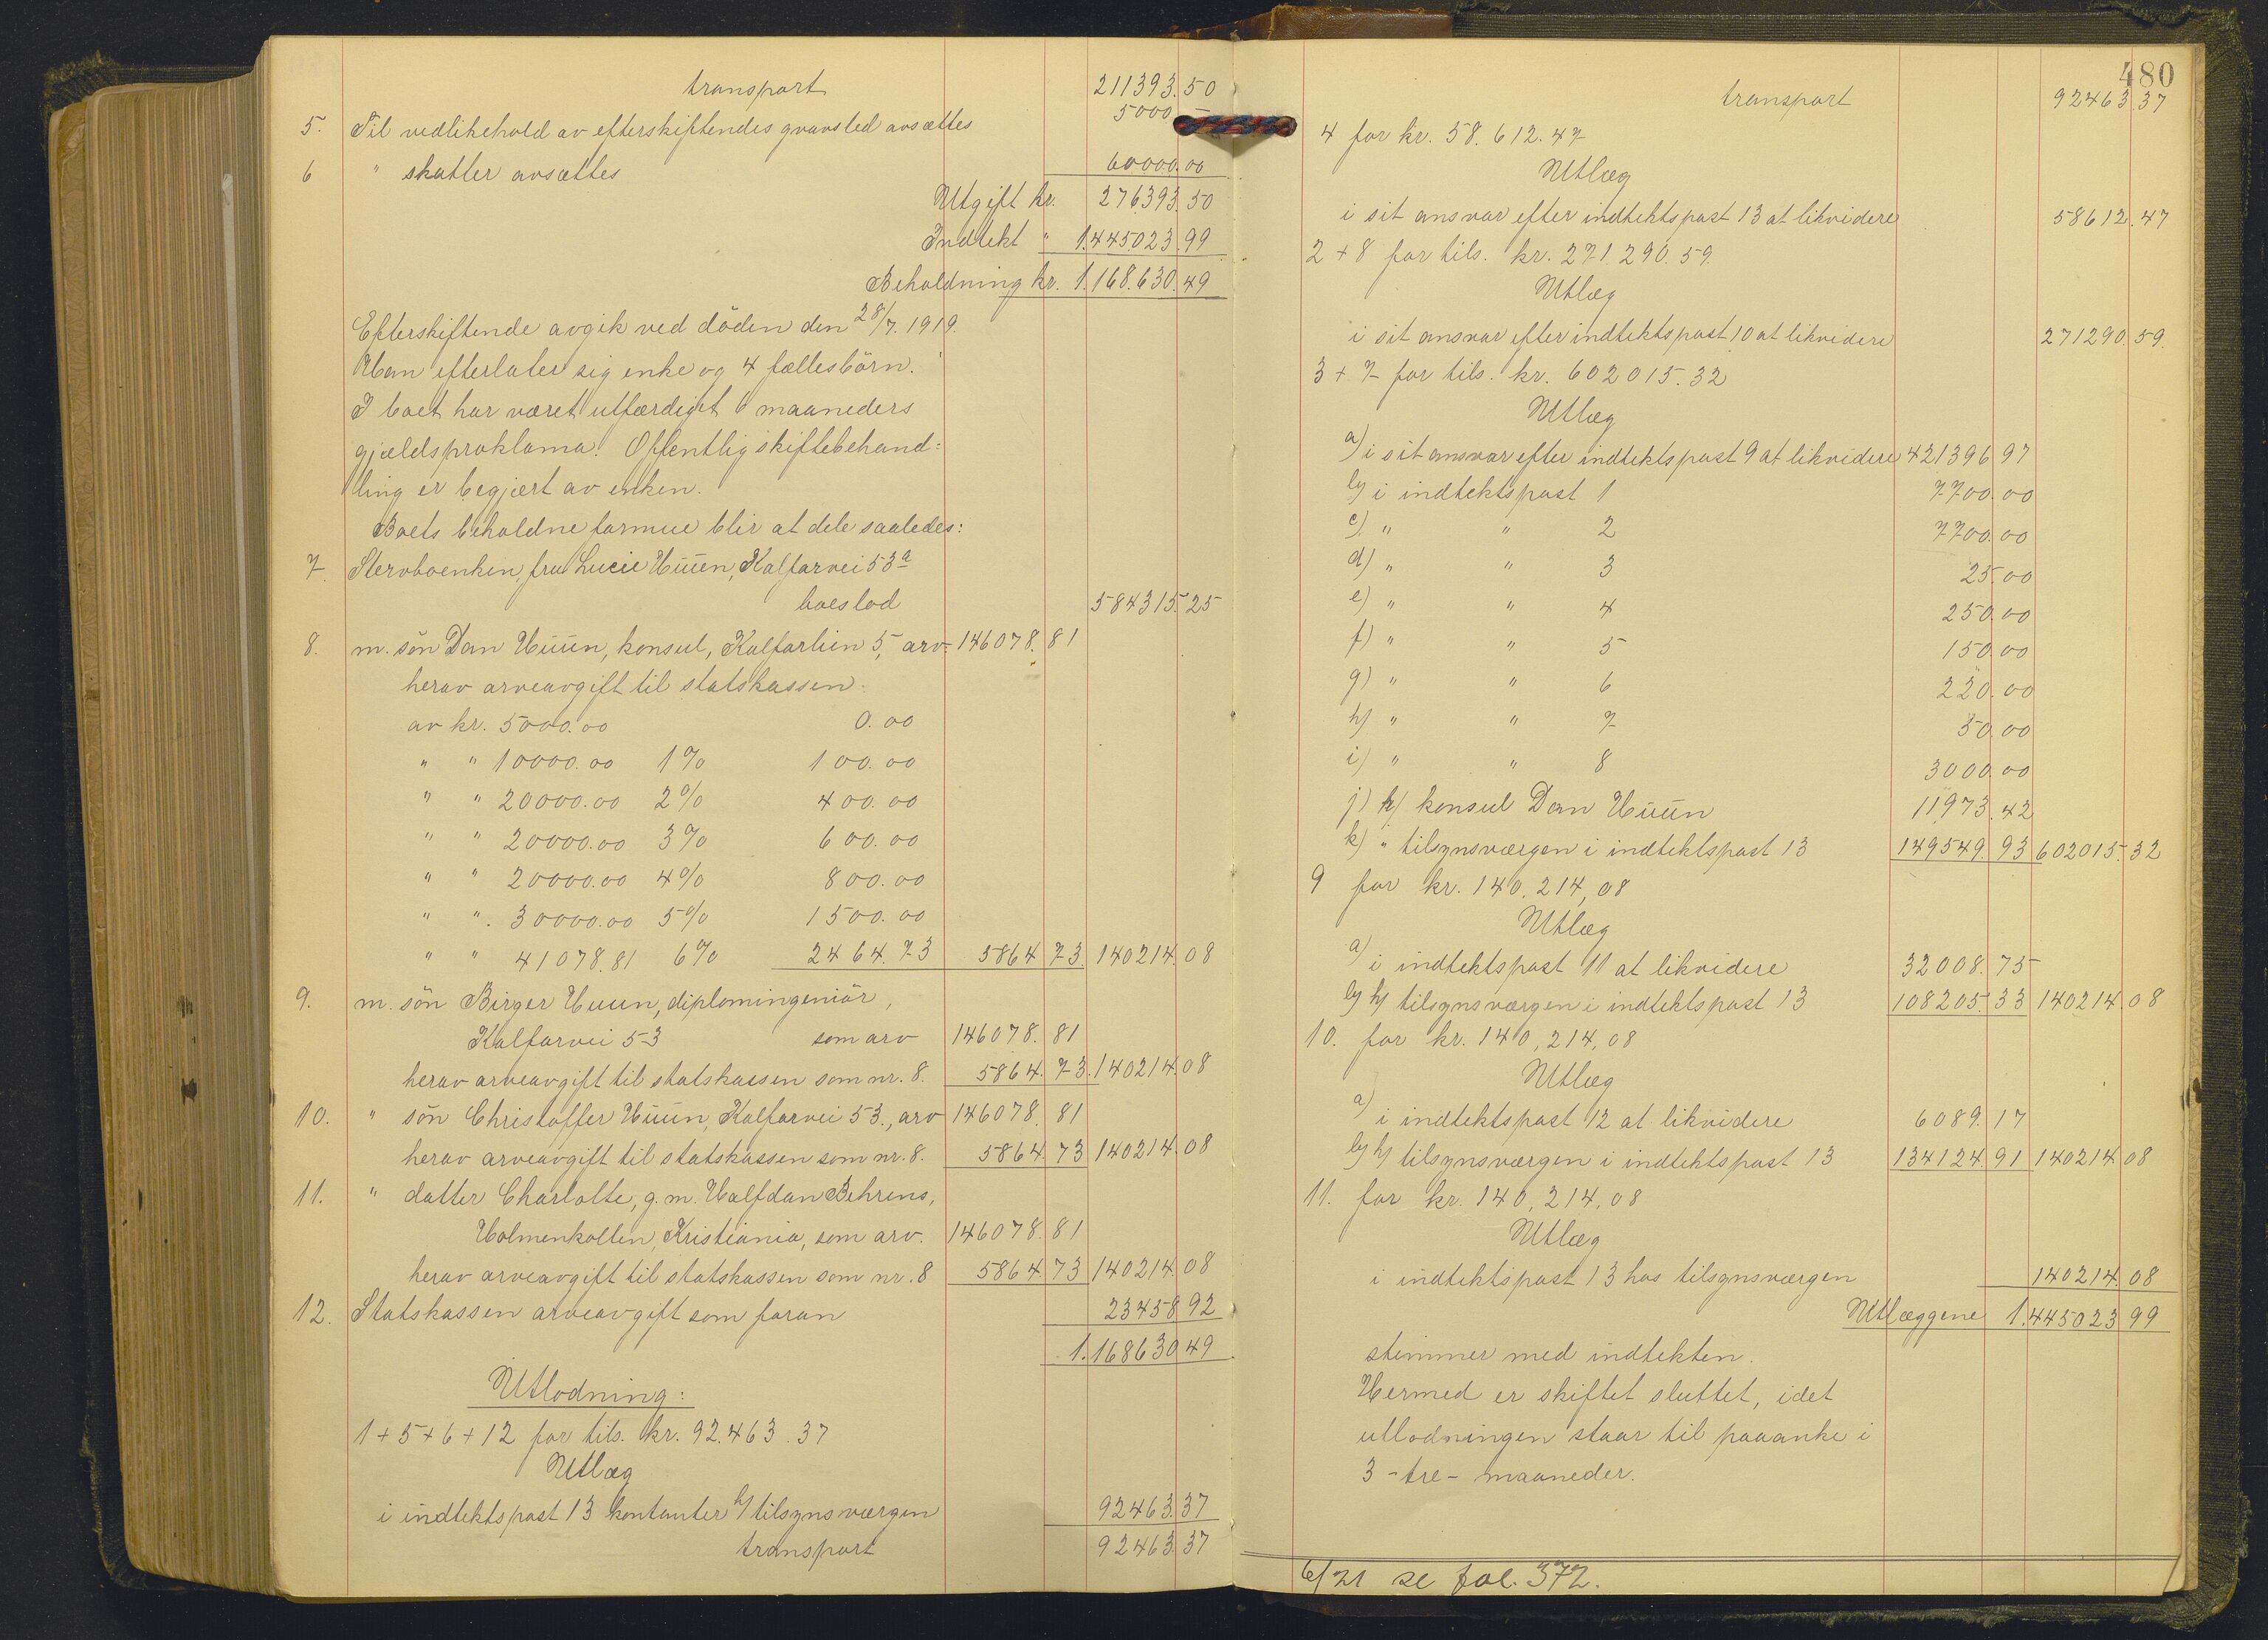 transport 211393.50
5. Til vedlikehold av efterskiftendes gravsted avsættes 5000 –
6 " skatter avsættes 60000.00
Utgift kr. 276393.50
Indtekt " 1.445023.99
Beholdning kr. 1.168.630.49
Efterskiftende avgik ved döden den 28/7. 1919.
Han efterlater sig enke og 4 fællesbörn.
I boet har været utfærdiget 6 maaneders
gjældsproklama. Offentlig skiftebehand=
ling er begjært av enken.
Boets beholdne formue blir at dele saaledes:
7. Stervboenken, fru Lucie Huun, Kalfarvei 53a
boeslod 584315.25
8. m. sön Dan Huun, konsul, Kalfarlien 5, arv 146078.81
herav arveavgift til statskassen:
av kr. 5000.00 0.00
" " 10000.00 1% 100.00
" " 20000.00 2% 400.00
" " 20000.00 3% 600.00
" " 20000.00 4% 800.00
" " 30000.00 5% 1500.00
" " 41078.81 6% 2464.73 5864 73 140214.08
9. m. sön Birger Huun, diplomingeniör,
Kalfarvei 53 som arv 146078.81
herav arveavgift til statskassen som nr. 8. 5864.73 140214.08
10. " sön Christoffer Huun, Kalfarvei 53., arv 146078.81
herav arveavgift til statskassen som nr. 8. 5864 73 140214.08
11. " datter Charlotte, g. m. Halfdan Behrens,
Holmenkollen, Kristiania, som arv. 146078.81
herav arveavgift til statskassen som nr. 8 5864 73 140214.08
12. Statskassen arveavgift som foran 23458 92
1.168630 49
Utlodning:
1 + 5 + 6 + 12 for tils. kr. 92.463.37
Utlæg
i indtektspost 13 kontanter h/ tilsynsværgen 92463.37
transport 92463.37
480
transport 92463 37
4 for kr. 58.612.47
Utlæg
i sit ansvar efter indtektspost 13 at likvidere 58612.47
2 + 8 for tils. kr. 271.290.59.
Utlæg
i sit ansvar efter indtektspost 10 at likvidere 271290.59.
3 + 7 for tils. kr. 602015.32
Utlæg
a) i sit ansvar efter indtektspost 9 at likvidere 421396 97
b) i indtektspost 1 7700.00
c) " " 2 7700.00
d) " " 3 25.00
e) " " 4 250.00
f) " " 5 150.00
g) " " 6 220.00
h) " " 7 50.00
i) " " 8 3000.00
j) h/ konsul Dan Huun 11973.42
k) " tilsynsværgen i indtektspost 13 149549.93 602015.32
9 for kr. 140.214,08
Utlæg
a) i indtektspost 11 at likvidere 32008.75
b) h/ tilsynsværgen i indtektspost 13 108205.33 140214.08
10. for kr. 140,214,08
Utlæg
a) i indtektspost 12 at likvidere 6089.17
b) h/ tilsynsværgen i indtektspost 13 134124.91 140214 08
11. for kr. 140,214,08
Utlæg
i indtektspost 13 hos tilsynsværgen 140214.08
Utlæggene 1.445023 99
stemmer med indtekten.
Hermed er skiftet sluttet, idet
utlodningen staar til paaanke i
3 - tre - maaneder.
6/21 se fol. 372.